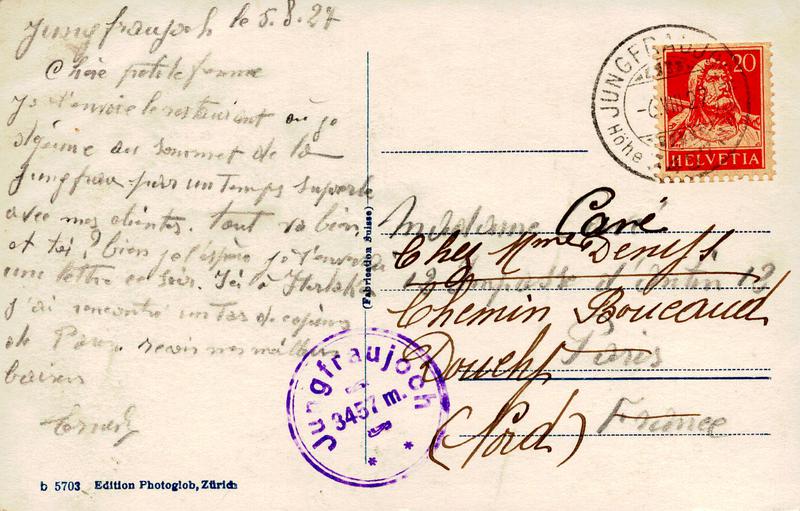 Jungfraujoch le 5.8.27
Chère petite femme
Je t'envoie le restaurant où je
déjeune au sommet de la
Jungfrau par un temps superbe
avec mes clientes. tout va bien,
et toi? bien je l'espère je t'enverrai
une lettre ce soir. Ici à
j'ai rencontré un tas de copains
de Paris. reçois mes meilleurs
baisers
b 5703 Edition Photoglob, Zürich
(Fabrication Suisse)
JUNGFRAUJOCH
Höhe
20
HELVETIA
Madame Cavé
Chez Mme Denyss
12 Impasse d'Antin 12
Chemin Boucaud
Paris
Douchy
(Nord)
France
Jungfraujoch
3457 m.